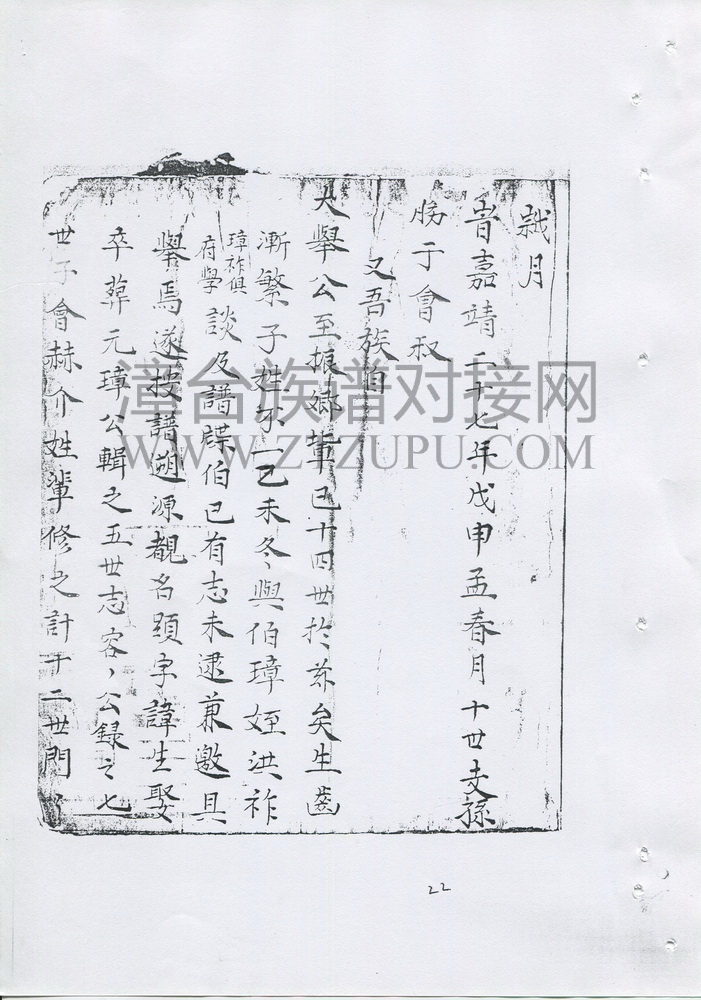 月
嘉靖二十七年戊申孟春月十世支孫
于會叔
又吾族自
大舉公至振鄉輩已十四世於茲矣生齒
漸繁子姓不一己未冬與伯璋姪洪祚
璋祚俱
府學
談及譜牒伯已有志未逮兼邀具
舉焉遂按譜溯源覩名顕字諱生娶
卒葬元璋公輯之五世志客公錄之七
世子會赫介姓輩修之計十二世門
漳台族谱对接网
WWW.ZTZUPU.COM
22